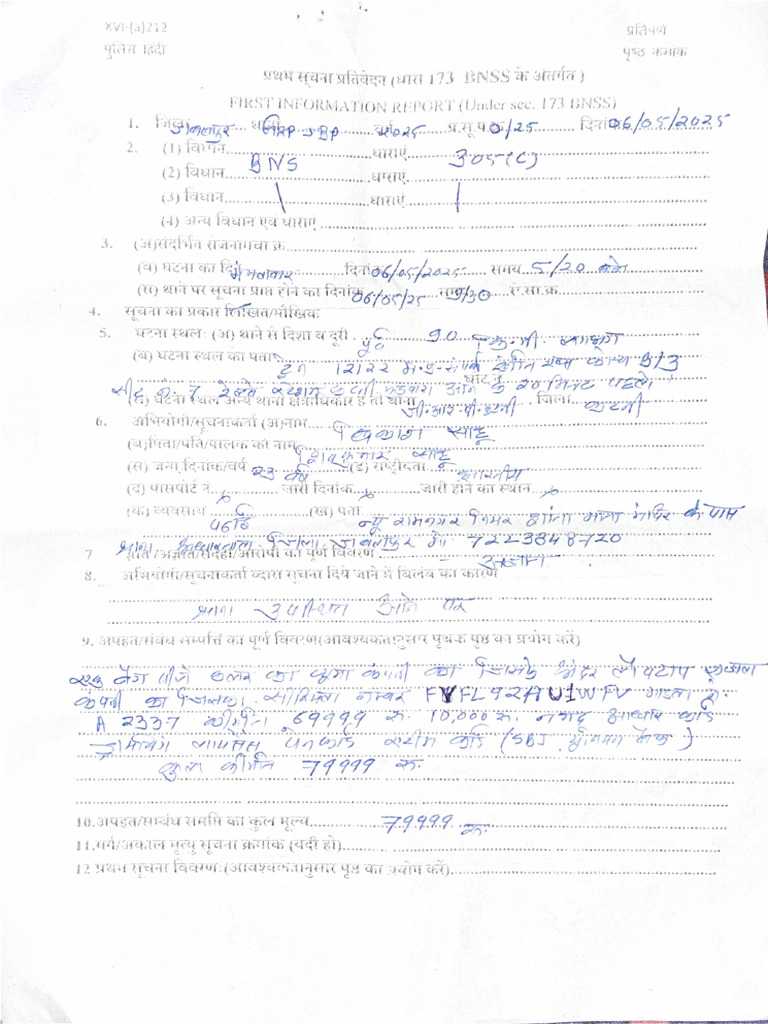 XVI-(a)212 प्रतिपर्ण
पुलिस हिंदी पृष्ठ कमांक
प्रथम सूचना प्रतिवेदन (धारा 173 BNSS के अंतर्गत )
FIRST INFORMATION REPORT (Under sec. 173 BNSS)
1. जिला जबलपुर थाना GRP JBP वर्ष 2025 प्र.सू.प.क्र. 0/25 दिनांक 06/05/2025
2. (1) विधान BNS धाराएं 305(C)
(2) विधान धाराएं
(3) विधान धाराएं
(4) अन्य विधान एवं धाराएं
3. (अ)संदर्भित राजनामचा क्र
(ब) घटना का दिन मंगलवार दिनांक 06/05/2025 समय 5/20 बजे
(स) थाने पर सूचना प्राप्त होने का दिनांक 06/05/25 समय 9/30 रो.सा.क्र
4. सूचना का प्रकार लिखित/मौखिक
5. घटना स्थल: (अ) थाने से दिशा व दूरी पूर्व 90 कि.मी. लगभग
(ब) घटना स्थल का पता ट्रेन 12122 म.प्र. संपर्क क्रांति एक्स कोच B/3
सीट क्र. 7 रेल्वे स्टेशन कटनी मुड़वारा आने के 20 मिनट पहले
(स) घटना स्थल अन्य थाना क्षेत्राधिकार है तो थाना जी.आर.पी. कटनी जिला कटनी
6. अभियोगी/सूचनाकर्ता (अ)नाम विकास साहू
(ब)पिता/पति/पालक का नाम शिवकुमार साहू
(स) जन्म दिनांक/वर्ष 23 वर्ष (ड) राष्ट्रीयता भारतीय
(द) पासपोर्ट नं. जारी दिनांक जारी होने का स्थान
(क) व्यवसाय पढ़ाई (ख) पता न्यू रामनगर नियर शांता माता मंदिर के पास
थाना अधारताल जिला जबलपुर मो 7223848720
7 ज्ञात /अज्ञात/संदेही/आरोपी का पूर्ण विवरण अज्ञात
8. अभियोगी/सूचनाकर्ता व्दारा सूचना दिये जाने में बिलंब का कारण
थाना उपस्थित आने पर
9. अपहृत/संबंध सम्पत्ति का पूर्ण विवरण(आवश्यकतानुसार पृथक पृष्ठ का प्रयोग करें)
एक बैग पीले कलर का प्यूमा कंपनी का जिसके अंदर लैपटाप
कंपनी का जिसका सीरियल नम्बर FYFL92AU1WFV माडल क्र
A 2337 कीमति 69999 रु. 10,000 रु. नगद आधार कार्ड
ड्रायविंग लायसेंस पेनकार्ड एटीएम कार्ड (SBI बैंक)
कुल कीमति 79999 रु.
10.अपहृत/सम्बंध सम्पति का कुल मूल्य 79999 रु.
11.मर्ग/अकाल मृत्यु सूचना क्रमांक (यदी हो)
12 प्रथम सूचना विवरण:(आवश्यकतानुसार पृष्ठ का प्रयोग करें)